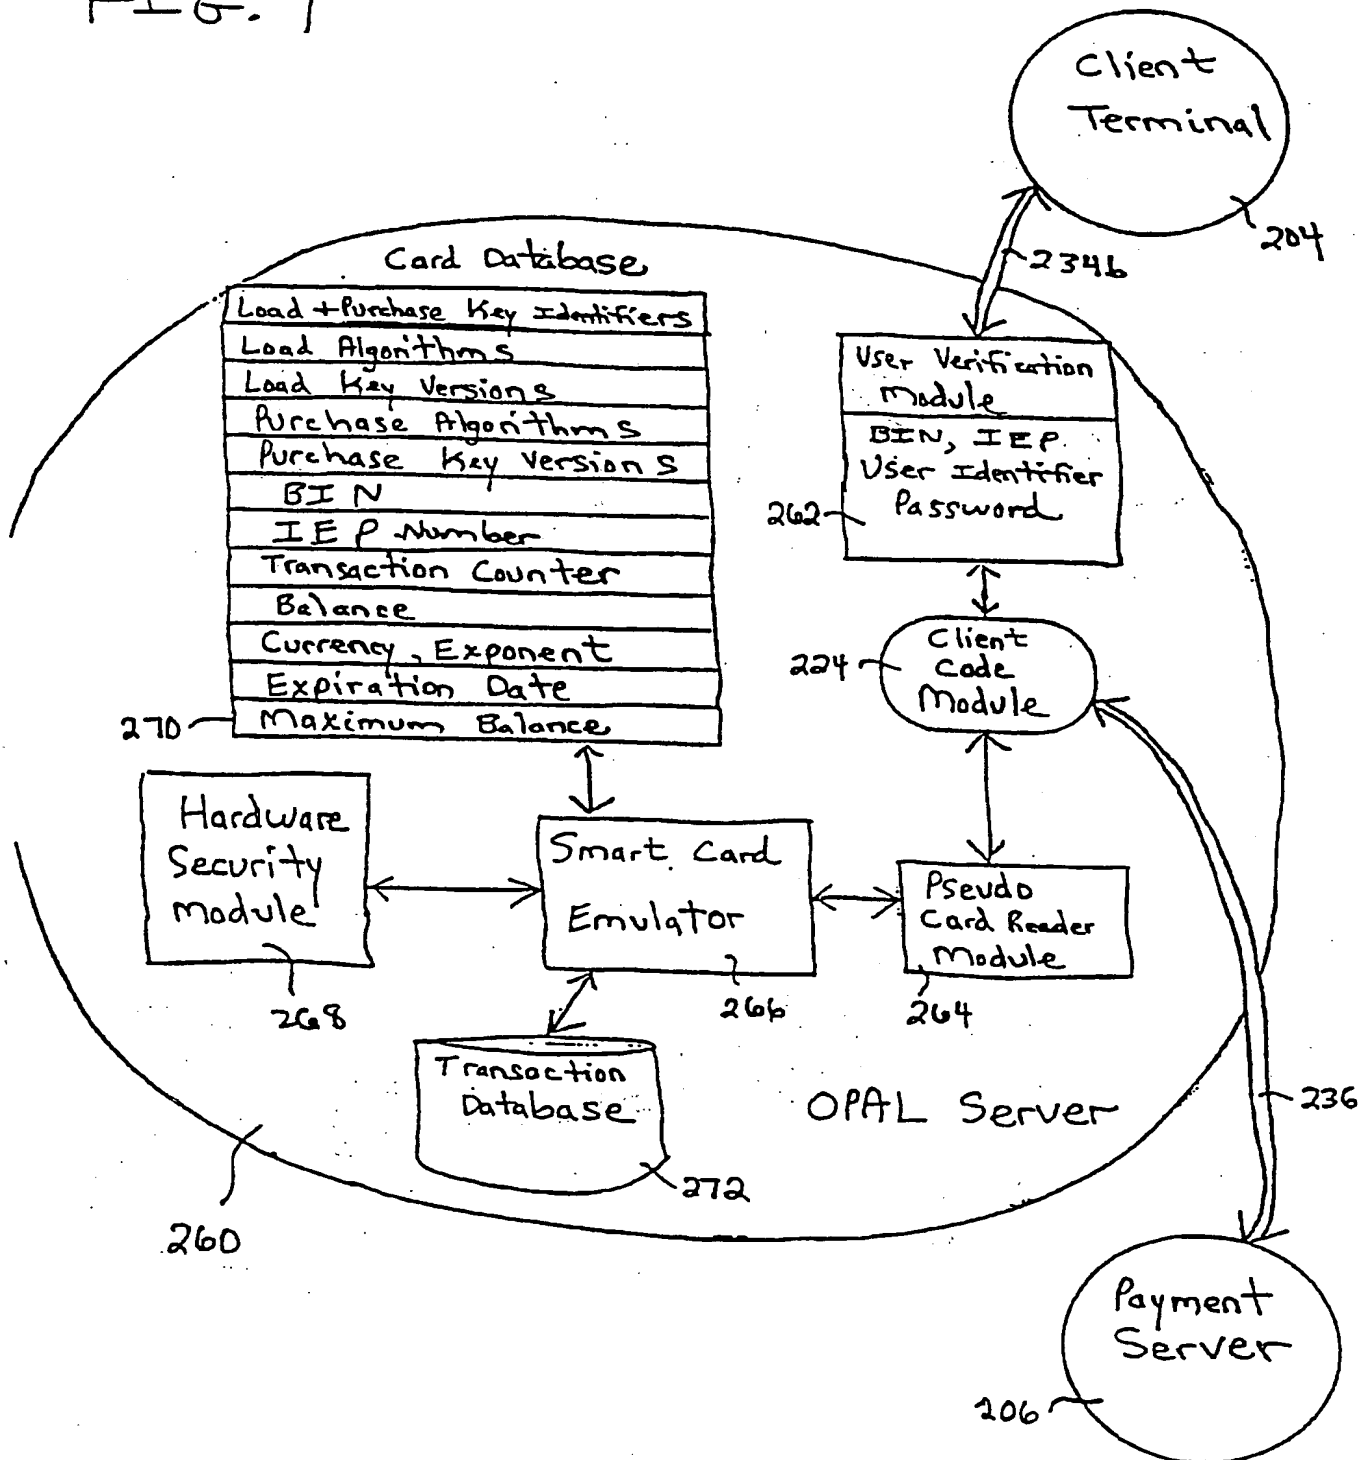 FIG. 7
Client
Terminal
204
234b
Card Database
Load + Purchase Key Identifiers
Load Algorithms
Load Key Versions
Purchase Algorithms
Purchase Key Versions
BIN
IEP Number
Transaction Counter
Balance
Currency, Exponent
Expiration Date
Maximum Balance
270
User Verification
Module
BIN, IEP
User Identifier
Password
262
Client
Code
Module
224
Hardware
Security
Module
268
Smart Card
Emulator
266
Pseudo
Card Reader
Module
264
Transaction
Database
272
OPAL Server
260
236
Payment
Server
206